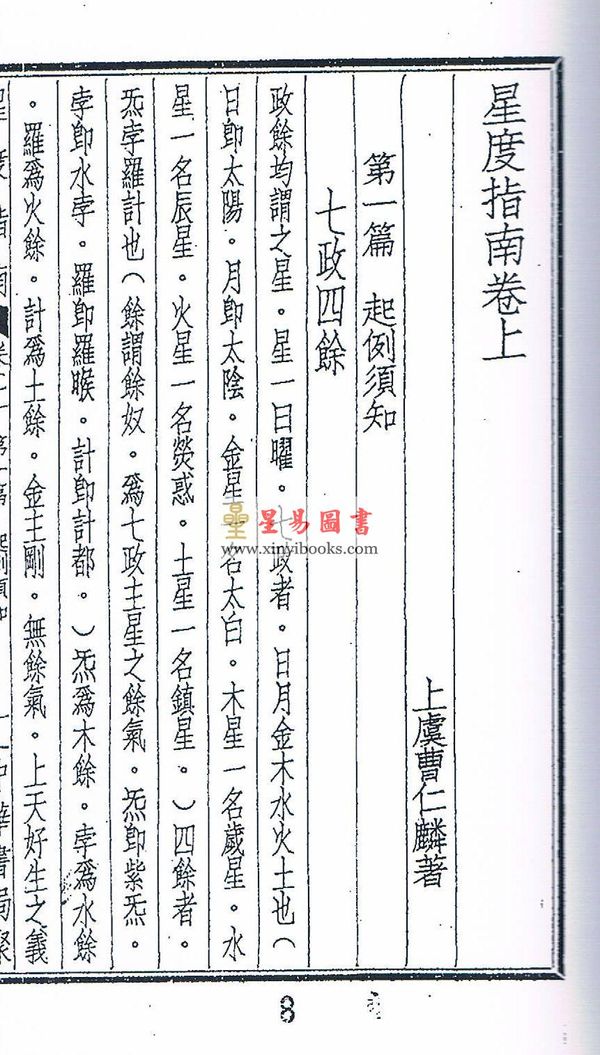 星度指南卷上
上虞曹仁麟著
第一篇 起例須知
七政四餘
政餘均謂之星。星一曰曜。七政者。日月金木水火土也（
日卽太陽。月卽太陰。金星一名太白。木星一名歲星。水
星一名辰星。火星一名熒惑。土星一名鎮星。）四餘者。
炁孛羅計也（餘謂餘奴。爲七政主星之餘氣。炁卽紫炁。
孛卽水孛。羅卽羅睺。計卽計都。）炁爲木餘。孛爲水餘
。羅爲火餘。計爲土餘。金主剛。無餘氣。上天好生之義
星易圖書
www.xinyibooks.com
8